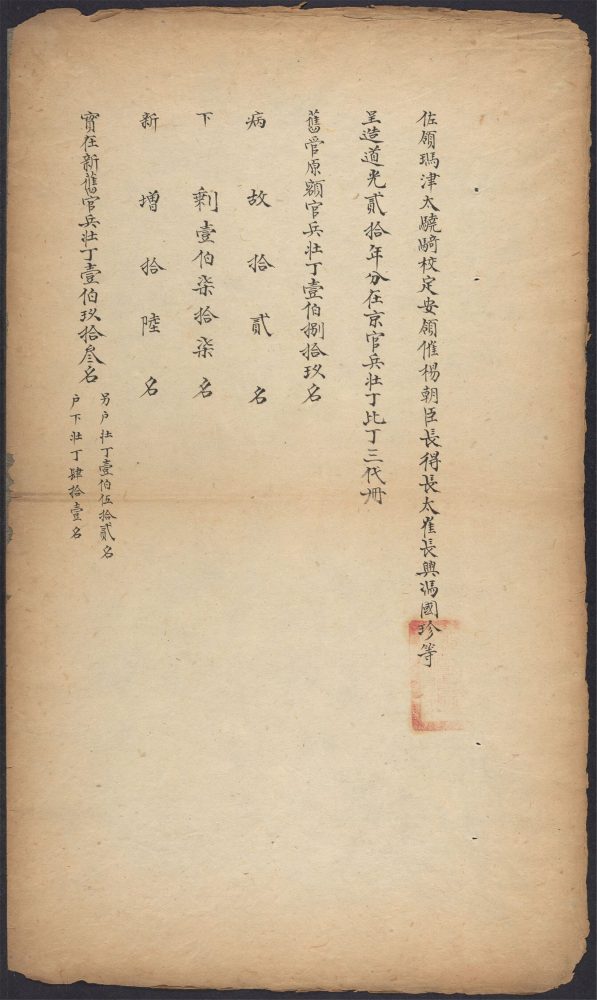 佐領瑪津太驍騎校定安領催楊朝臣長得長太崔長興馮國珍等
呈造道光貳拾年分在京官兵壯丁比丁三代冊
舊管原額官兵壯丁壹伯捌拾玖名
病故拾貳名
下剩壹伯柒拾柒名
新增拾陸名
實在新舊官兵壯丁壹伯玖拾叁名
另户壯丁壹伯伍拾貳名
户下壯丁肆拾壹名